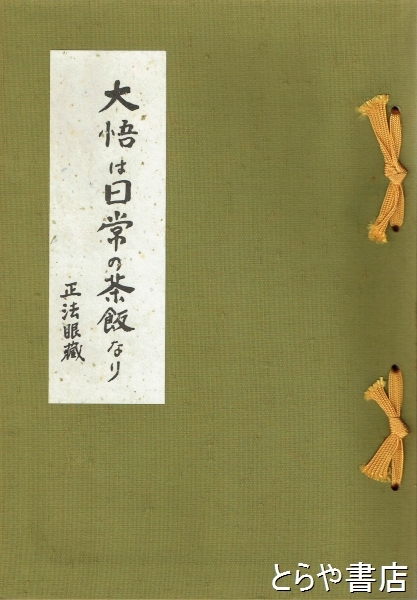 大悟は日常の茶飯なり
正法眼蔵
とらや書店